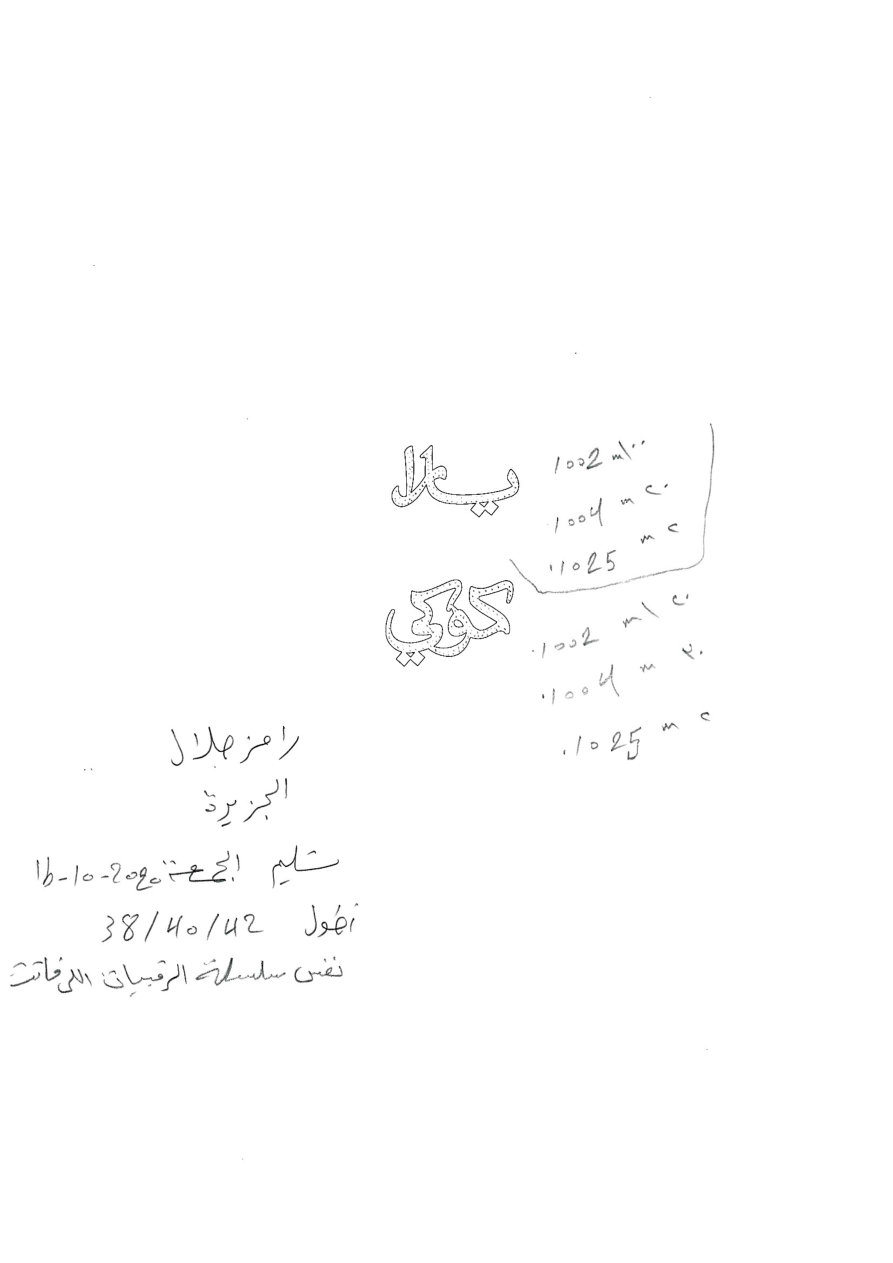 يلال
1002 m١٠٠
1004 m ٢٠
1025 m ٢
كوكي
1002 m١٢٠
1004 m ٢٠
1025 m ٢
رامز جلال
الجزيرة
تسليم الجمعة 16-10-2020
أطول 38/40/42
نفس سلسلة الرقبيات اللي فاتت